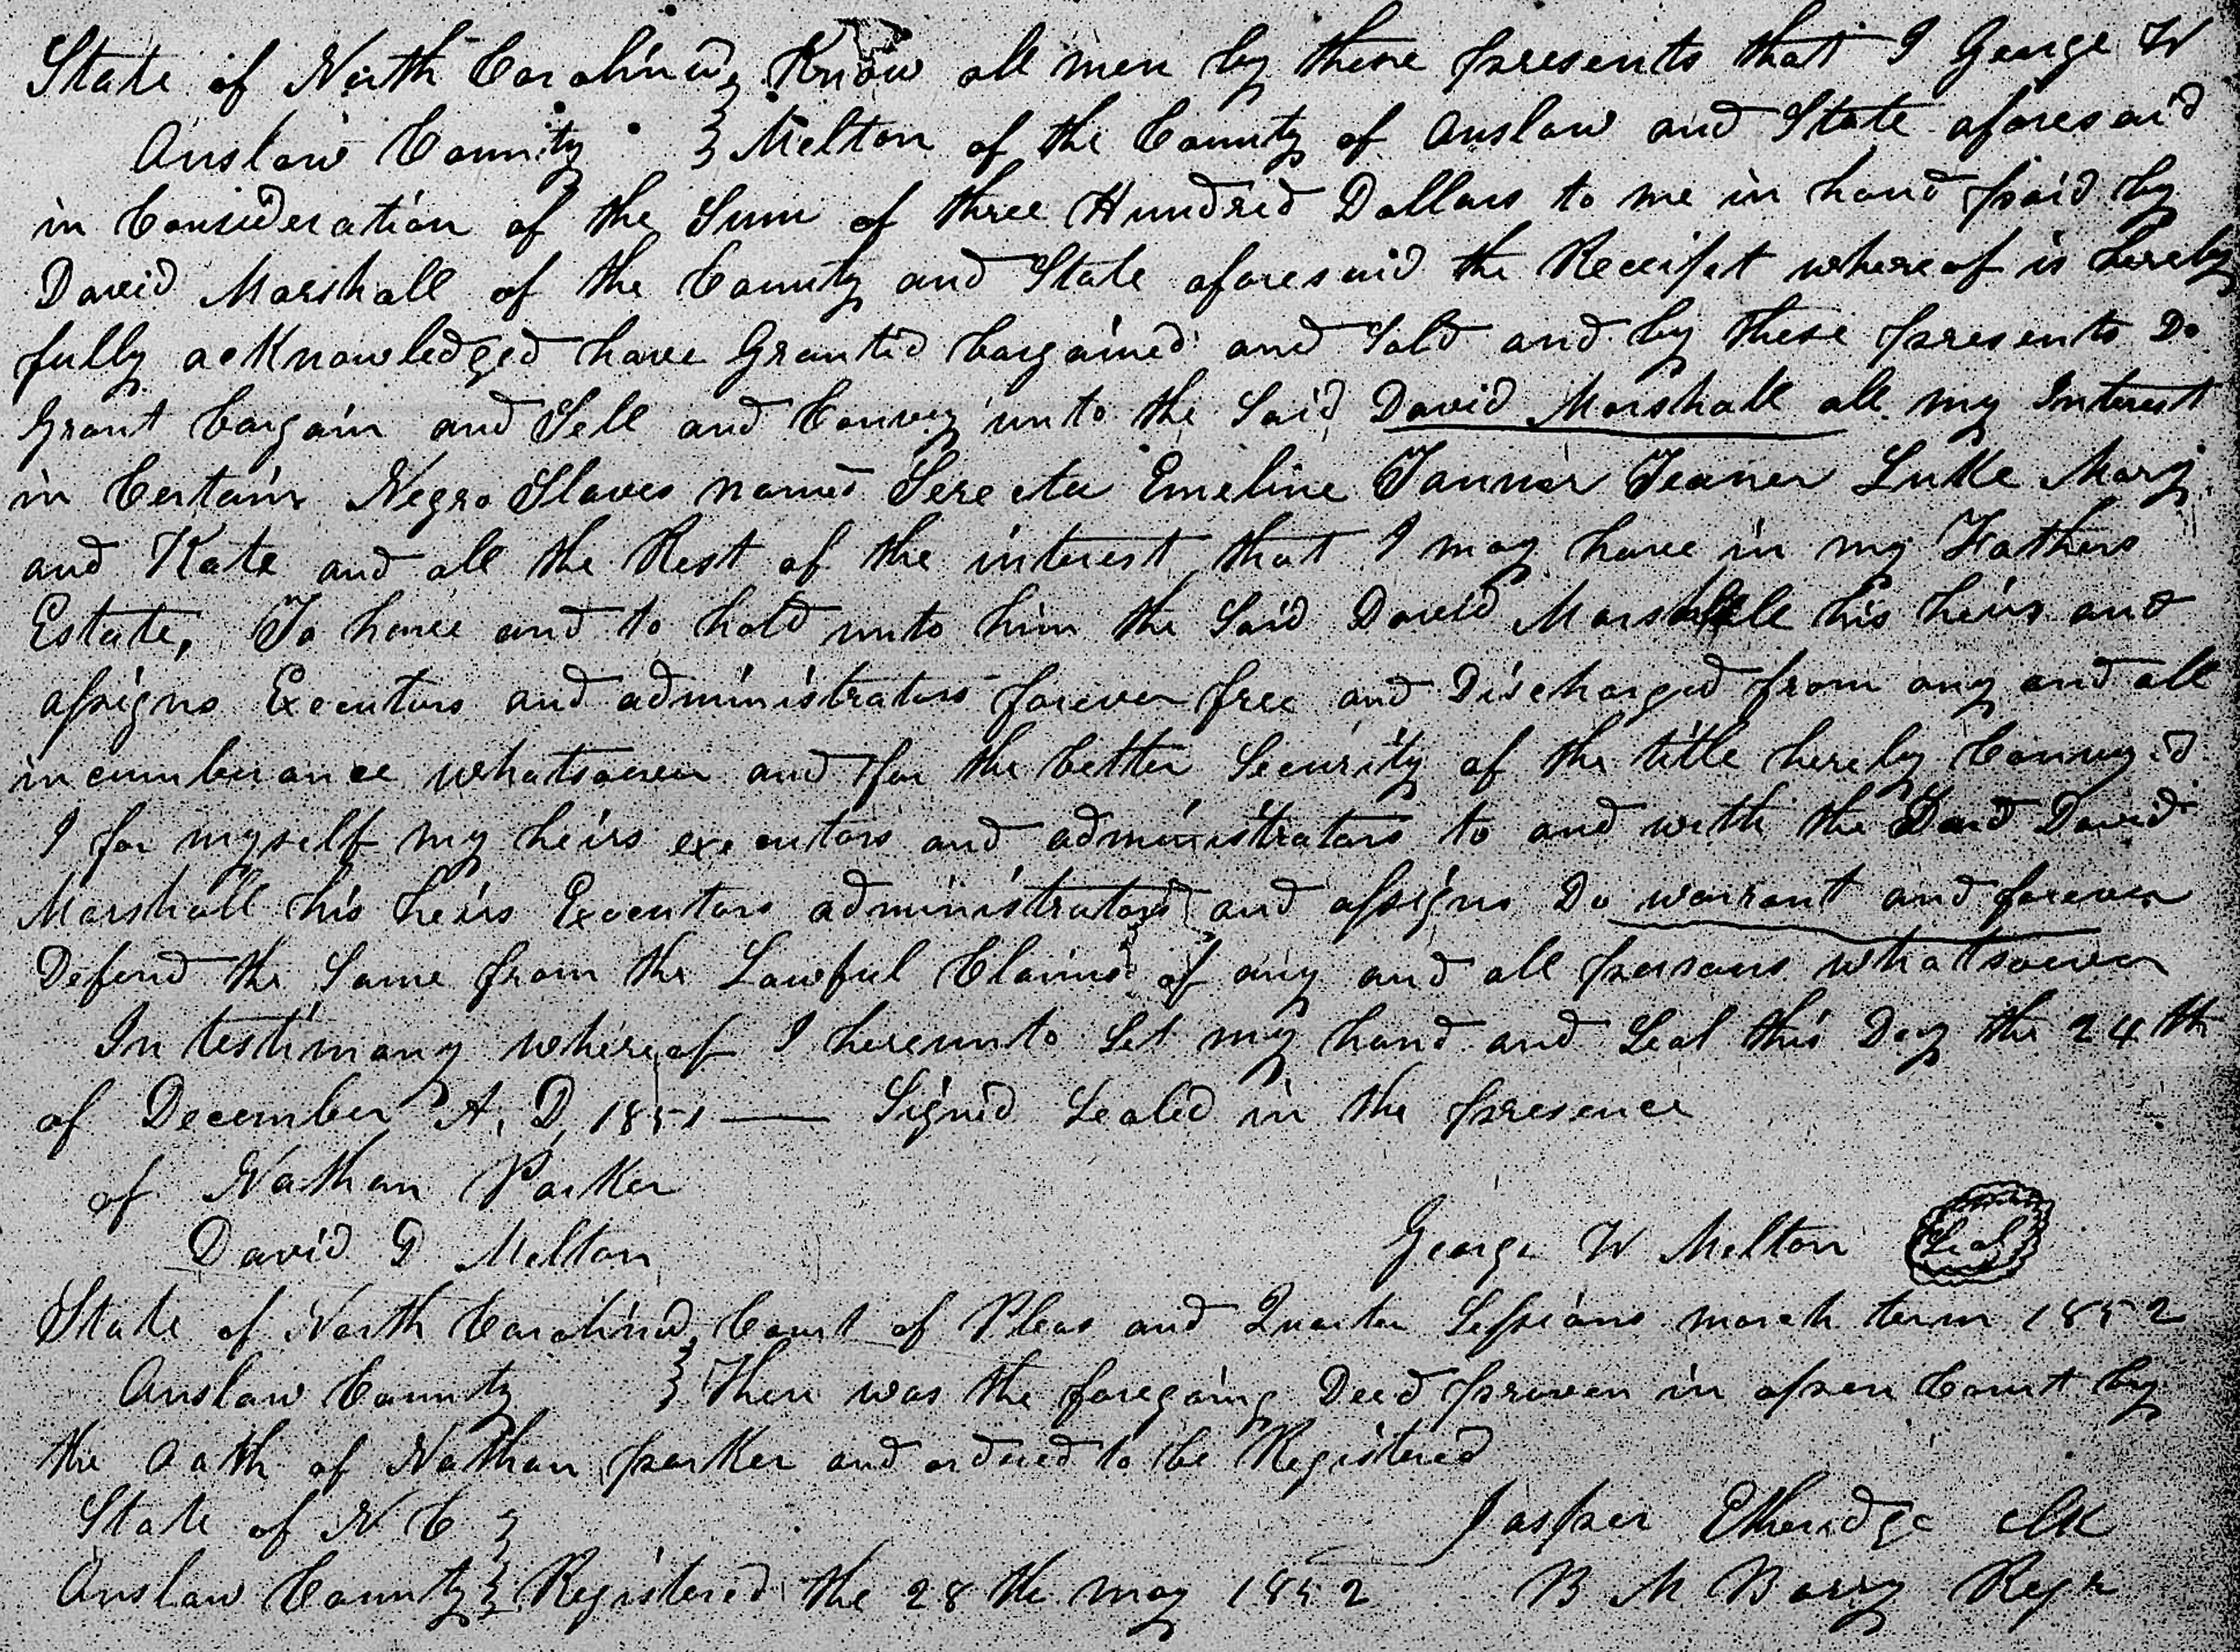 State of North Carolina } Know all men by these presents that I George W
Onslow County } Melton of the County of Onslow and State aforesaid
in Consideration of the Sum of three Hundred Dollars to me in hand paid by
David Marshall of the County and State aforesaid the Receipt whereof is hereby
fully acKnowledged have Granted bargained and Sold and by these presents Do
Grant bargain and Sell and Convey unto the Said David Marshall all my Interest
in Certain Negro Slaves named Emeline Luke Mary
and Kate and all the Rest of the interest that I may have in my Fathers
Estate, To have and to hold unto him the Said David Marshall his heirs and
assigns Executors and administrators forever free and Discharged from any and all
incumberance whatsoever and for the better Security of the title hereby Conveyed
I for myself my heirs executors and administrators to and with the Said David
Marshall his heirs Executors administrators and assigns Do warrant and forever
Defend the Same from the Lawful Claims of any and all persons whatsoever
In testimony whereof I hereunto Set my hand and Seal this Day the 24th
of December A, D, 1851 — Signed Sealed in the presence
of Nathan Parker
David D Melton
George W Melton Seal
State of North Carolina } Court of Pleas and Quarter Sessions march term 1852
Onslow County } Then was the foregoing Deed proven in open Court by
the Oath of Nathan parker and ordered to be Registered
State of N C }
Jasper Etheridge clk
Onslow County } Registered the 28th may 1852 B M Barry Regr